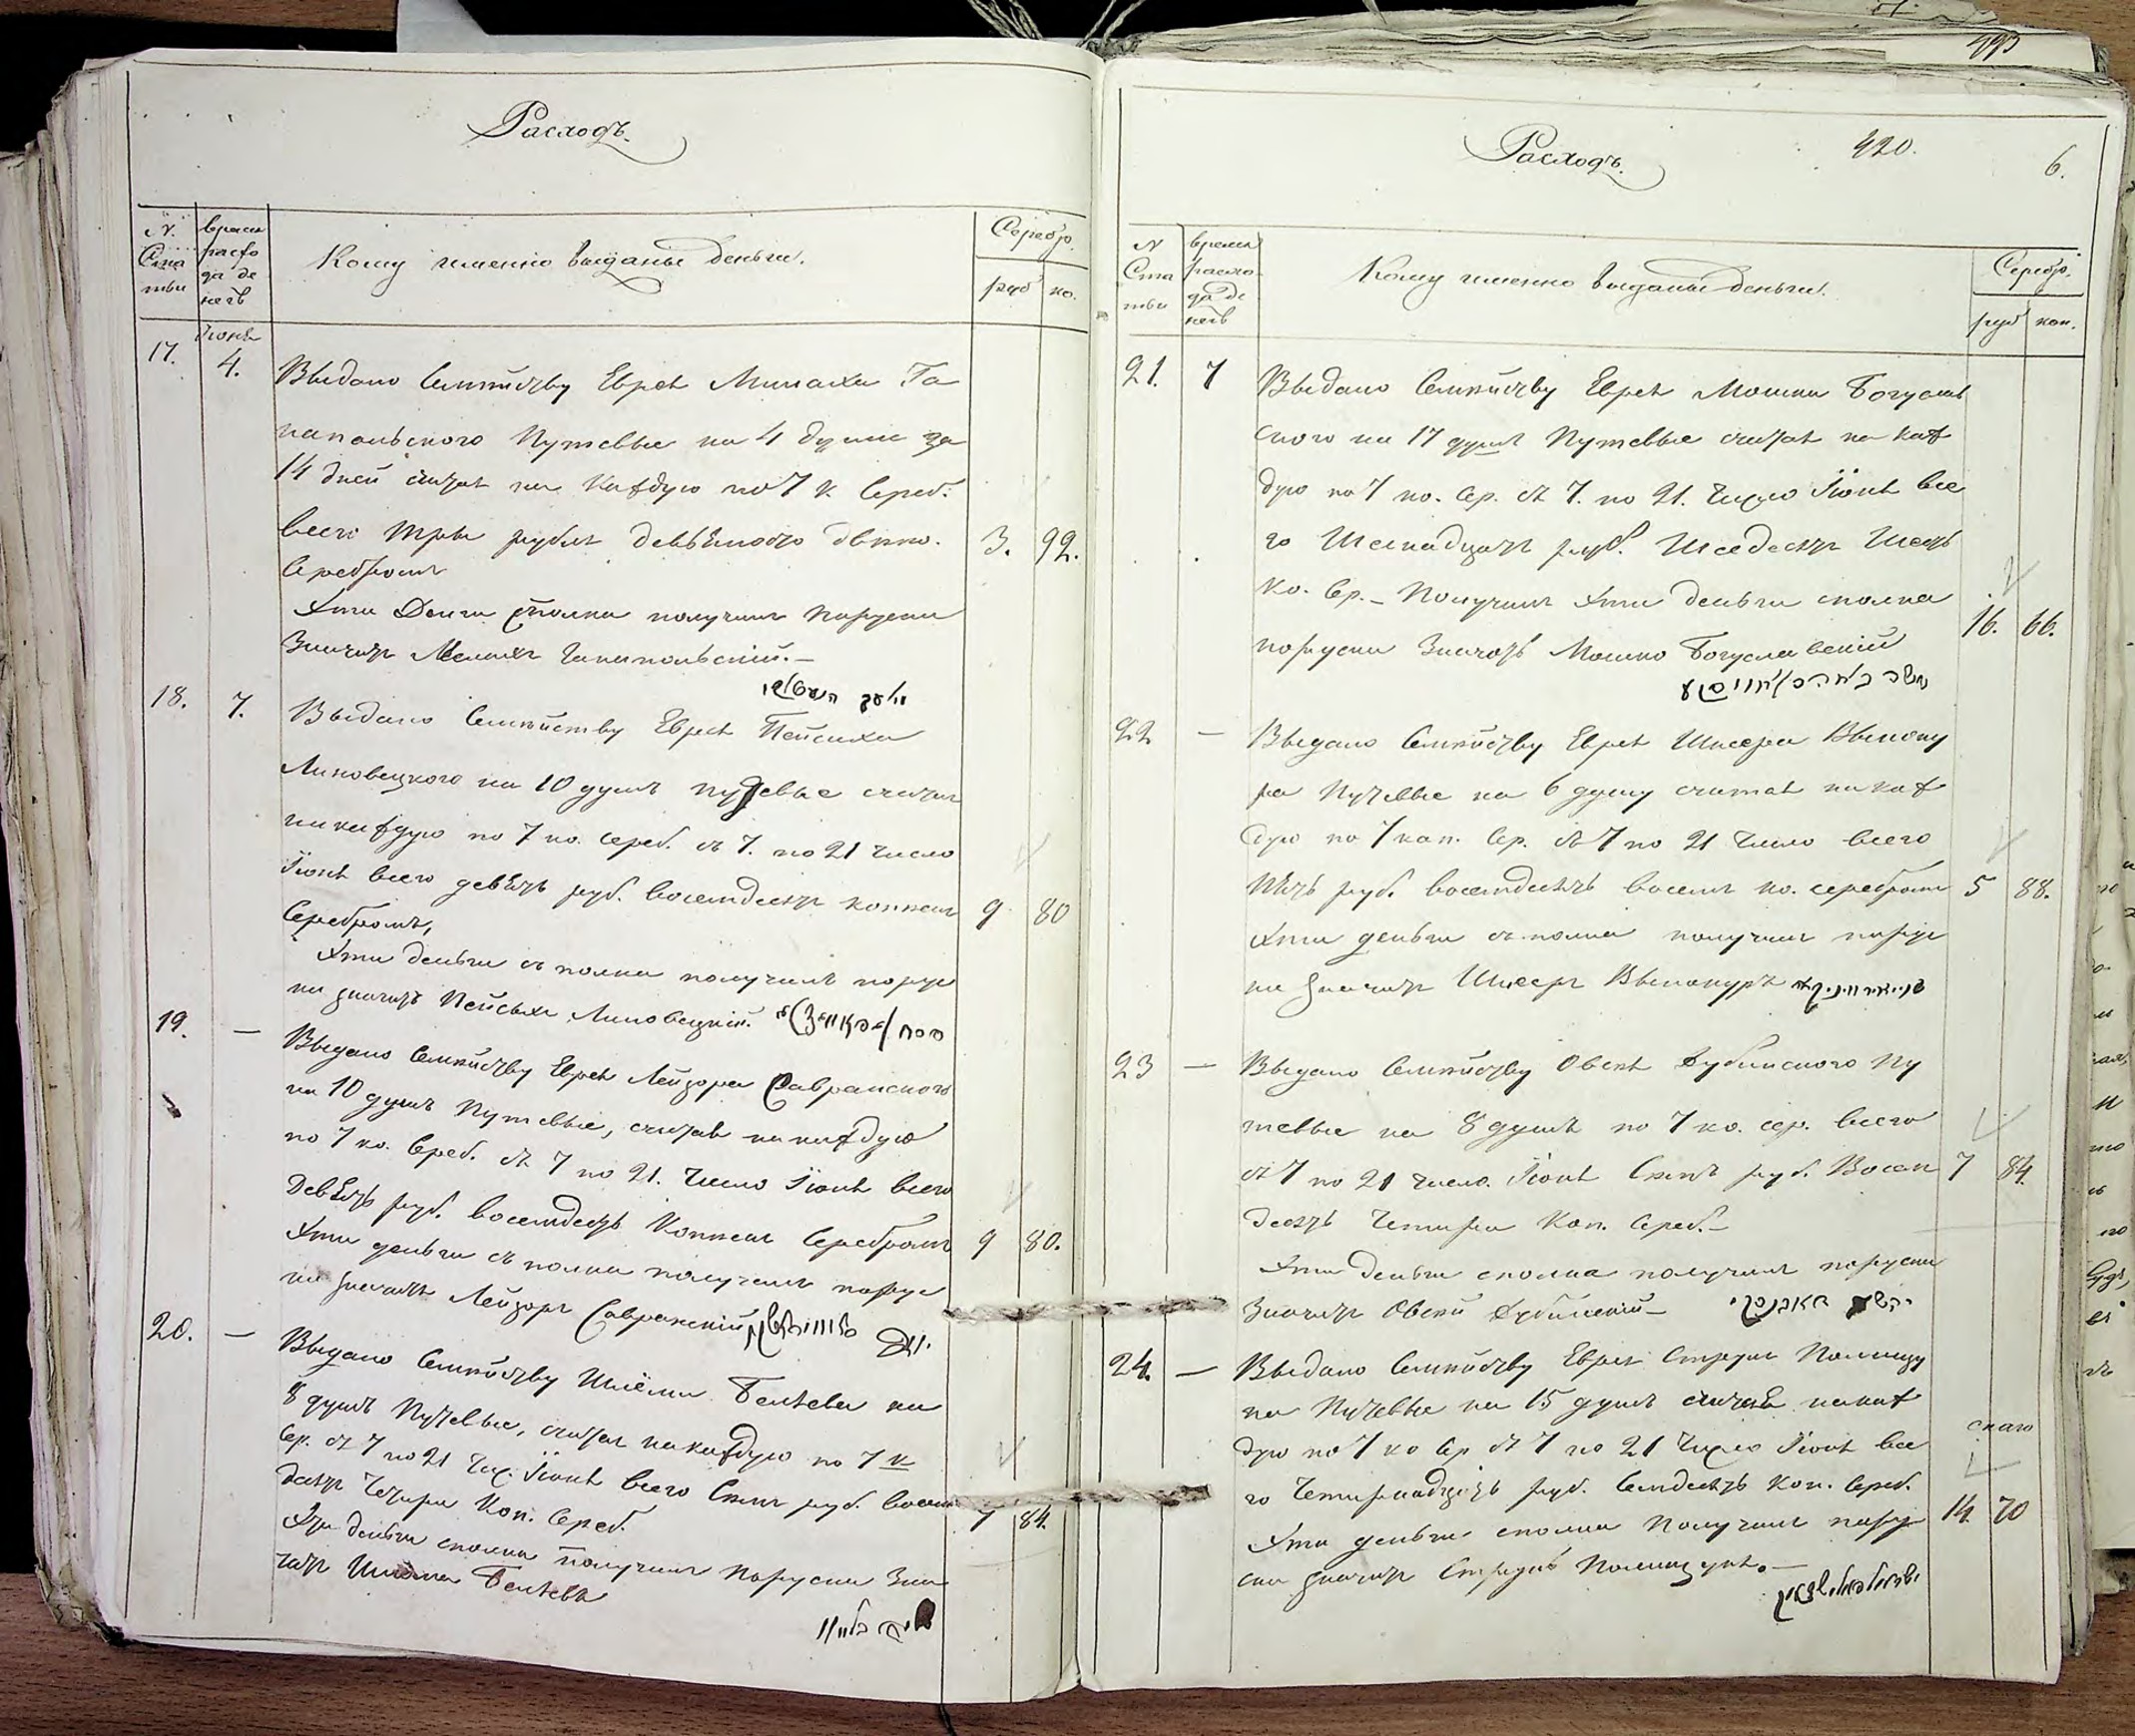 Расходъ.
N.
Ста
тьи
время
расхо
да де
негъ
Кому именно выданы деньги.
Серебр.
руб
ко.
17.
Іюня
4.
Выдано Семейству Еврея
на 4 души за
14 дней считая на каждую по 7 к. Сереб.
всего три рубля девяносто две ко.
Серебромъ
3. 92.
Эти Денги сполна получилъ порусски
Значитъ
18. 7. Выдано Семейству Еврея Пейсиха
Липовецкого на 10 душъ путевые считая
на каждую по 7 ко. сереб. съ 7. по 21 число
Іюня всего девять руб. восемдесятъ копѣекъ
Серебромъ,
9 80
Эти деньги съ полна получилъ порус
ки значитъ Пейсыхъ Липовецкій.
19. — Выдано Семейству Еврея Лейзора Савранского
на 10 душъ Путевые, считая на каждую
по 7 ко. Среб. съ 7 по 21. число Іюня всего
Девять руб. восемдесятъ Копѣекъ Серебромъ
9 80.
Эти деньги съ полна получилъ порус
ки значитъ Лейзоръ Савранскій
20. — Выдано Семейству Шлёмы на
8 душъ Путевые, считая на каждую по 7 к
Сер. съ 7 по 21 чис. Іюня всего Семь руб. восем
десятъ Четыри Коп. Сереб.
7 84.
Эти деньги сполна получилъ Порусски Зна
читъ Шлёма
Расходъ.
420.
6.
N
Ста
тьи
время
расхо
да де
негъ
Кому именно выданы деньги.
Серебр.
руб
коп.
21. 7 Выдано Семейству Еврея Мошки Богуслав
ского на 17 душъ Путевые считая на каж
дую по 7 ко. Сер. съ 7. по 21. число Іюня все
го Шеснадцать руб. Шесдесятъ Шесть
ко. Ср. – Получилъ Эти деньги сполна
16. 66.
порусски Значитъ Мошко Богуславскій
22 — Выдано Семейству Еврея
Путевые на 6 душу считая на каж
дую по 7 коп. Сер. съ 7 по 21 число всего
Пять руб. восемдесятъ восемъ ко. серебромъ
5 88.
Эти деньги съ полна получилъ порус
ки Значитъ
23 — Выдано Семейству Овсея Дубинского Пу
тевые на 8 душъ по 7 ко. сер. всего
съ 7 по 21 число. Іюня Семь руб. Восем
7 84.
десятъ Четыри Коп. Сереб.–
Эти деньги сполна получилъ порусски
Значитъ Овсей Дубинскій –
24. — Выдано Семейству Еврея
на Путевые на 15 душъ считая на каж
дую по 7 ко Ср съ 7 по 21 число Іюня все
го Четырнадцать руб. Семдесятъ Коп. Сереб.
14. 70
Эти деньги сполна Получилъ порус
ски значитъ